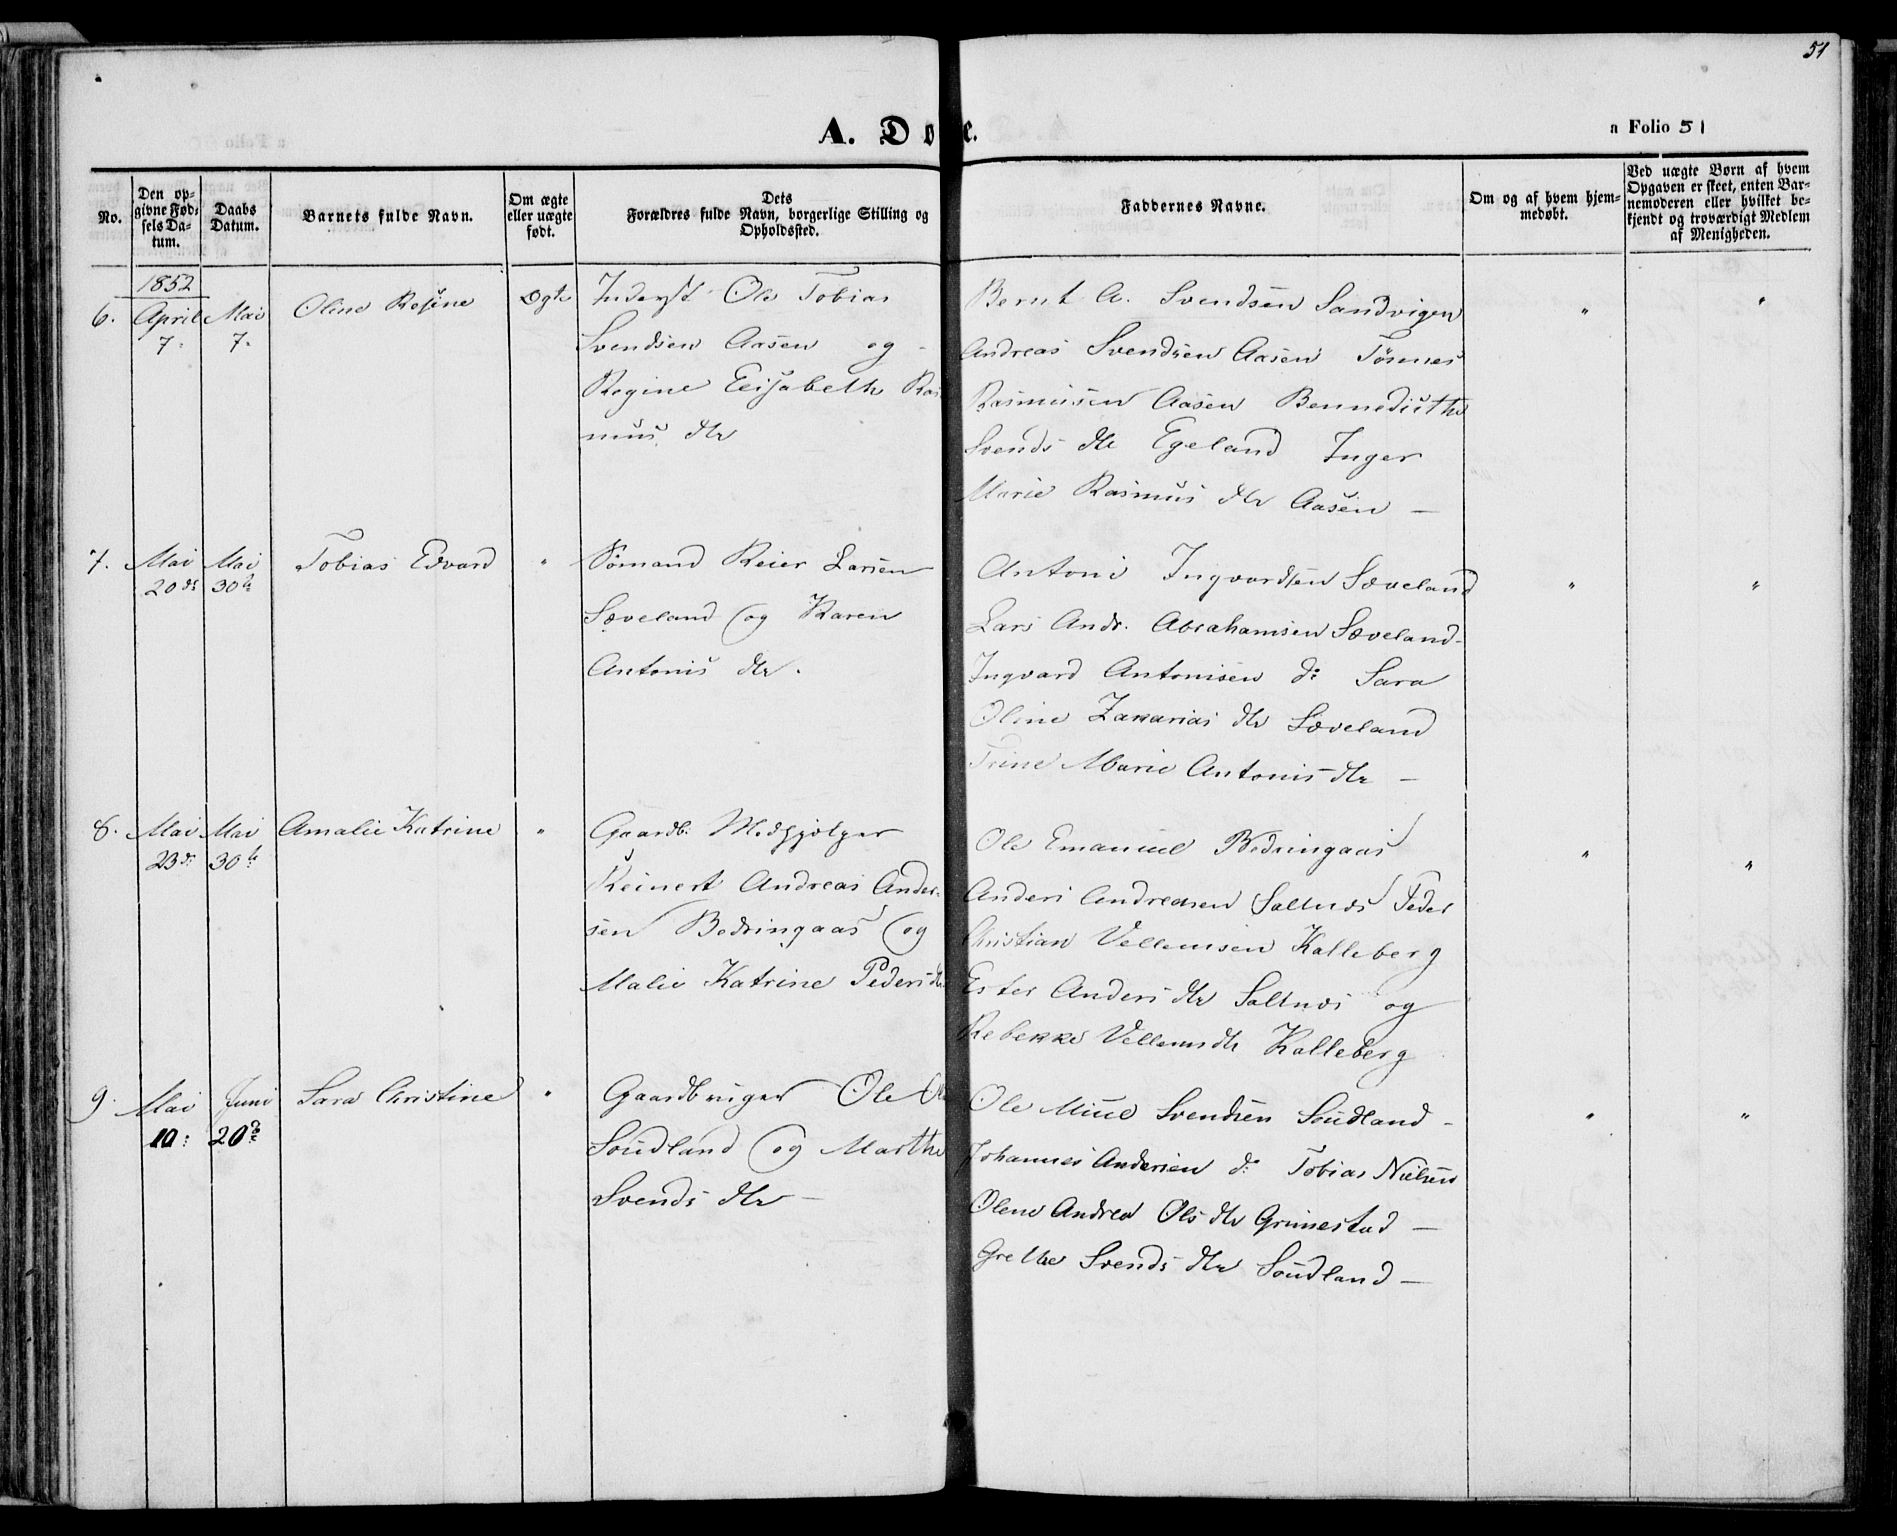 51
A. Dø e.
a Folio 51
No.
Den op-
givne Fød-
sels Da-
tum.
Daabs
Datum.
Barnets fulde Navn.
Om ægte
eller uægte
født.
Dets
Forældres fulde Navn, borgerlige Stilling og
Opholdssted.
Faddernes Navne.
Om og af hvem hjem-
medøbt.
Ved uægte Børn af hvem
Opgaven er skeet, enten Bar-
nemoderen eller hvilket be-
kjendt og troværdigt Medlem
af Menigheden.
1852
6. April 7. Mai 7. Oline Rosine ægte
Inderst Ole Tobias
Svendsen Aasen og -
Regine Elisabeth Ras
mus dtr
Bernt A. Svendsen Sandvigen
Andreas Svendsen Aasen Tönnes
Rasmussen Aasen Bennedicthe
Svends dtr Egeland Inger
Marie Rasmus dtr Aasen —
" "
7. Mai 20de Mai 30te Tobias Edvard "
Sömand Reier Larsen
Sæveland og Karen
Antonis dtr.
Antoni Ingvardsen Sæveland
Lars Andr. Abrahamsen Sæveland-
Ingvard Antonisen do Sara
Oline Zakarias dtr Sæveland
Trine Marie Antonis dtr —
" "
8. Mai 23de Mai 30te Amalie Katrine "
Gaardb: Medhjelper
Reinert Andreas Ander-
sen Bedringaas og
Malie Katrine Peders dtr
Ole Emanuel Bedringaas
Anders Andreasen Saltnæs Peder
Christian Vellemsen Kalleberg
Ester Anders dtr Saltnæs og
Rebekke Vellems dtr Kalleberg
" "
9. Mai 10: Juni 20de Sara Christine "
Gaardbruger Ole
Soudland og Marthe
Svends dtr —
Ole Svendsen Soudland -
Johannes Andersen do Tobias Nielsen
Olene Andrea Ols dtr Grimestad —
Grethe Svends dtr Soudland —
" "